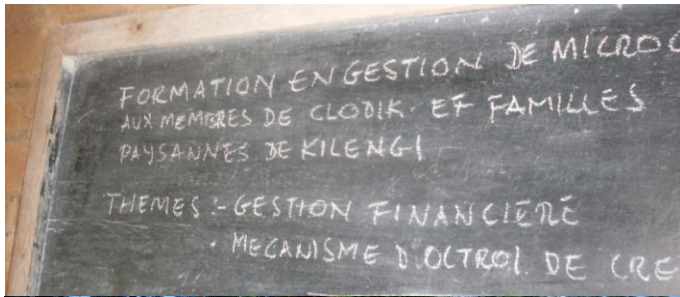 FORMATION EN GESTION DE MICROC
AUX MEMBRES DE CLODIK ET FAMILLES
PAYSANNES DE KILENGI
THEMES :- GESTION FINANCIÈRE
· MECANISME D'OCTROI DE CRE